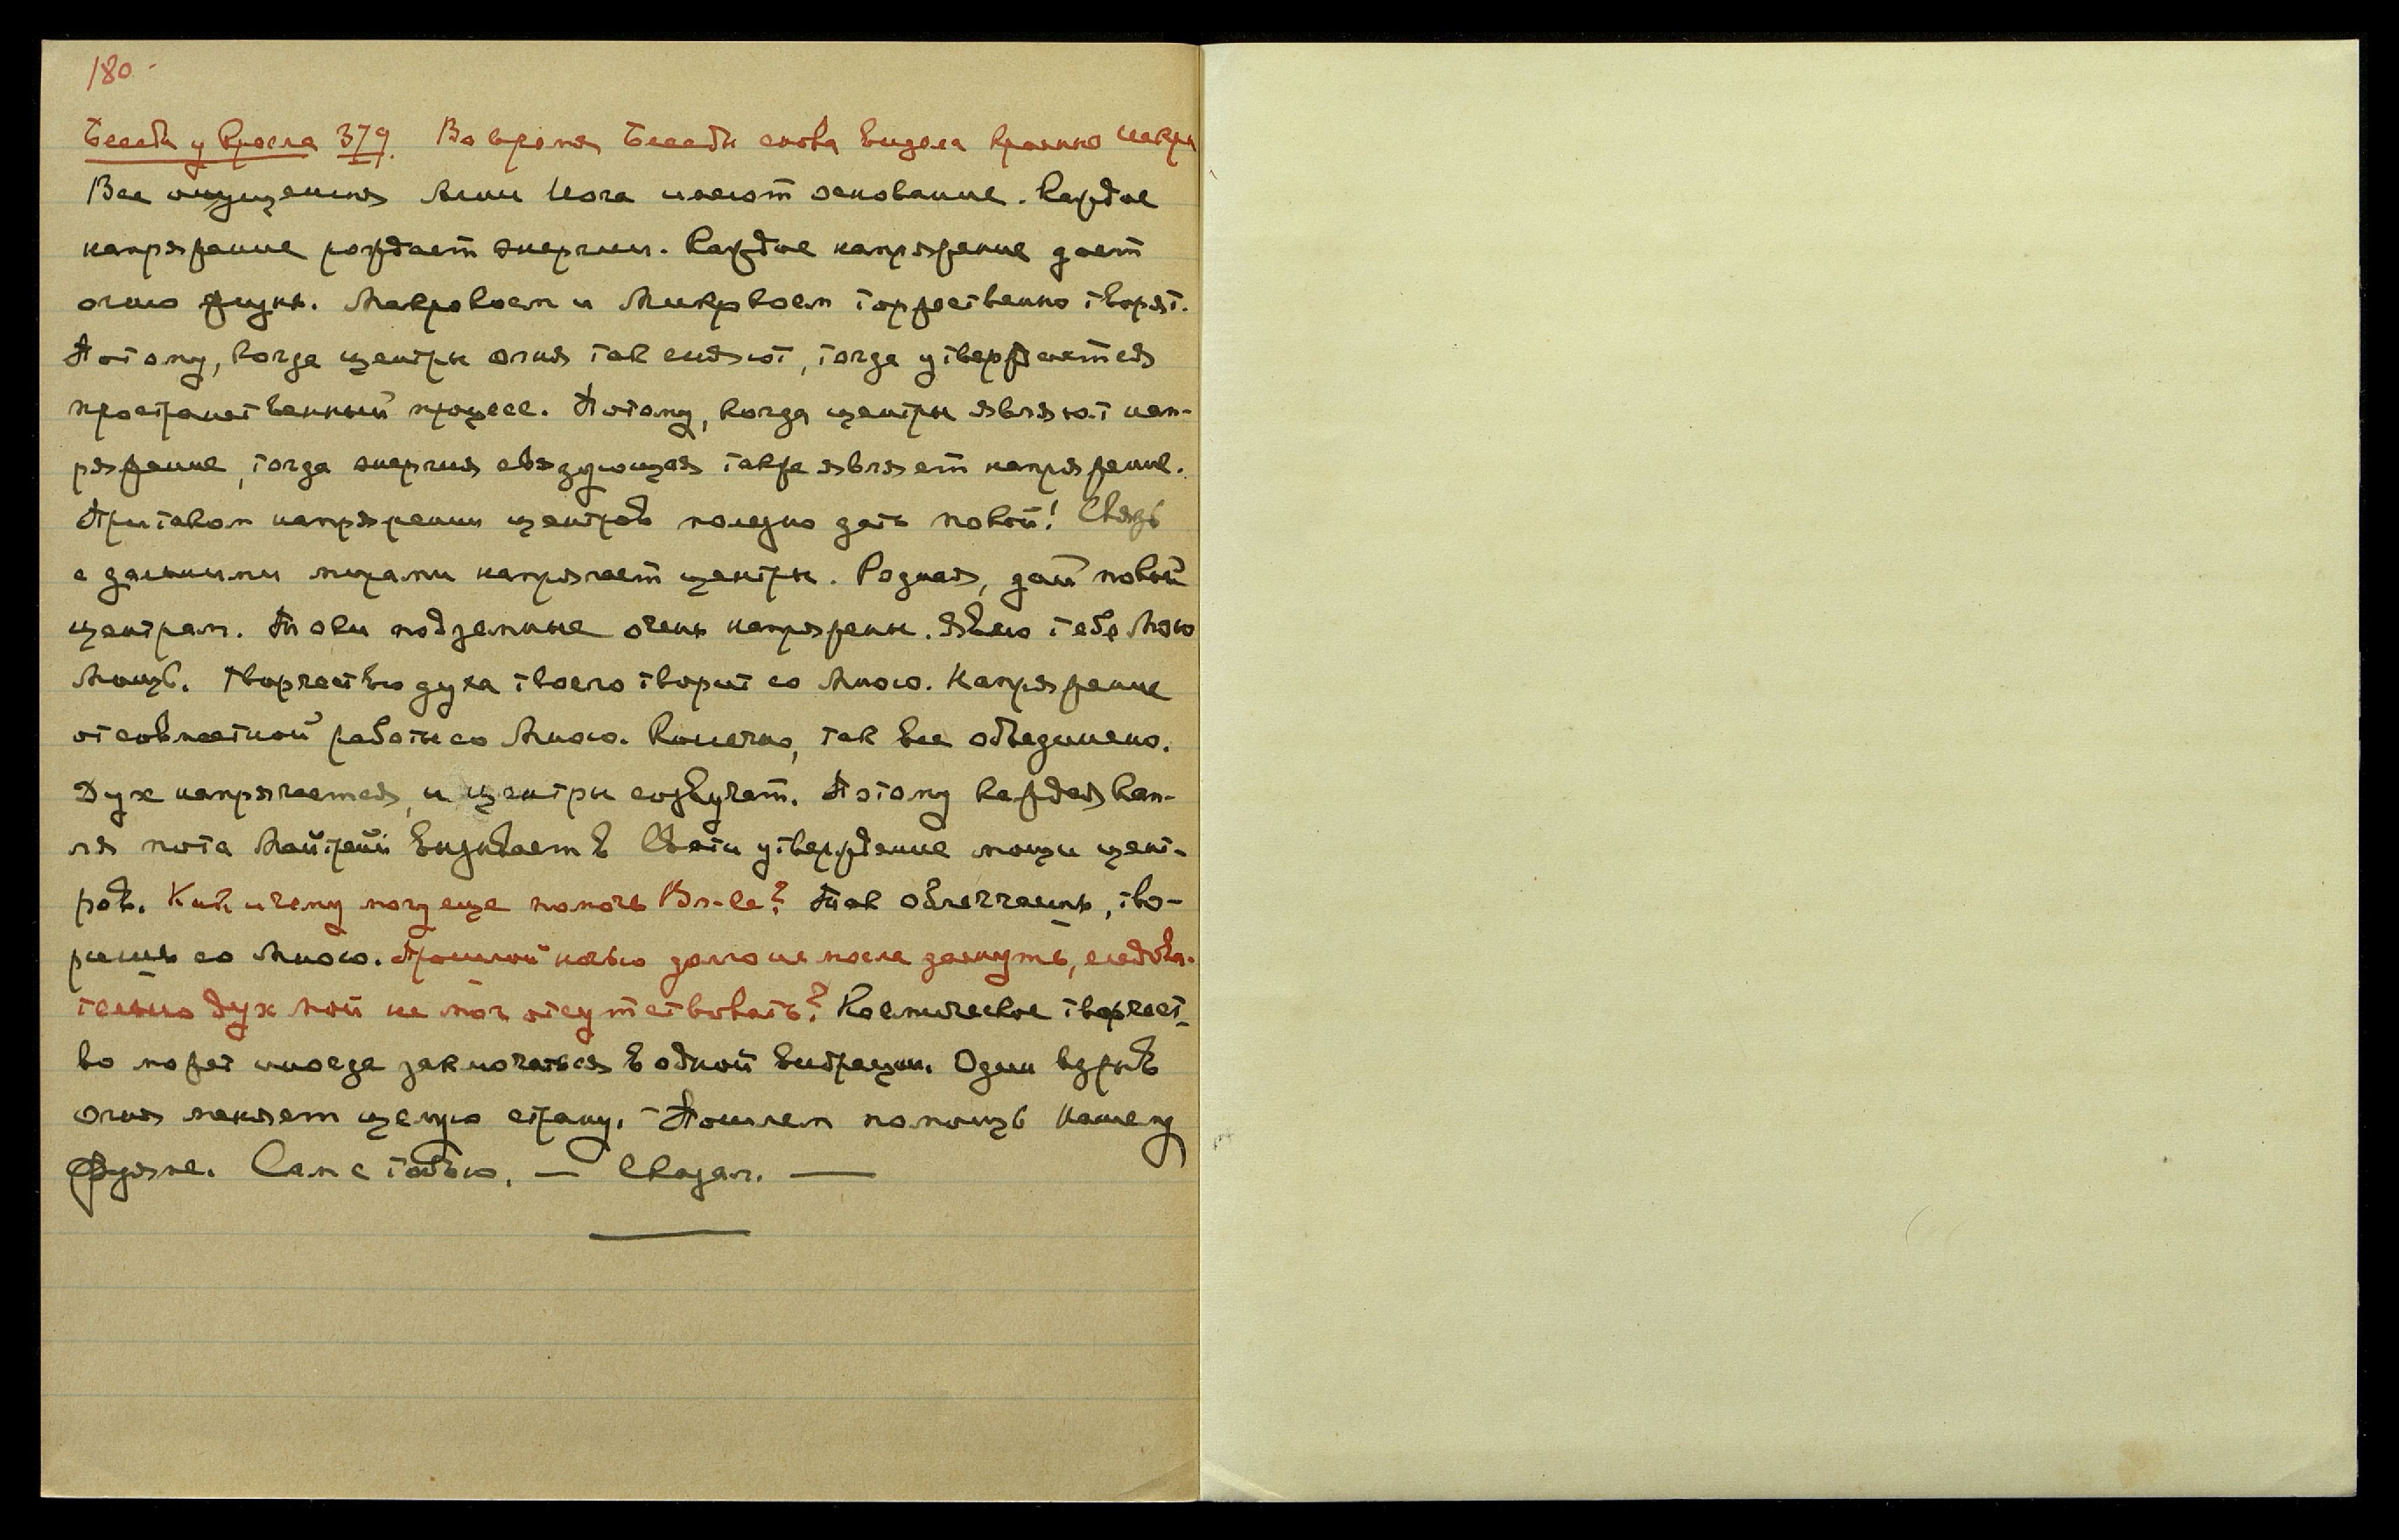 180 -
Беседы у Кресла 379. Во время Беседы снова видела красные искры
Все ощущения Агни Йога имеют основание. Каждое
напряжение рождает энергии. Каждое напряжение дает
огню жизнь. Макрокосм и Микрокосм торжественно творят.
Потому, когда центры огня так сияют, тогда утверждается
пространственный процесс. Потому, когда центры являют нап-
ряжение, тогда энергия связующая также являет напряжение.
При таком напряжении центров полезно дать покой! Связь
с дальними мирами напрягает центры. Родная, дай покой
центрам. Токи подземные очень напряжены. Являю тебе Мою
Мощь. Творчество духа твоего творит со Мною. Напряжение
от совместной работы со Мною. Конечно, так все объединено.
Дух напрягается, и центры созвучат. Потому каждая кап-
ля пота Майтрейи вызывает в Свати утверждение мощи цент-
ров. Как и чему могу еще помочь Вл-ке? Так облегчаешь, тво-
ришь со Мною. Прошлой ночью долго не могла заснуть, следова-
тельно дух мой не мог отсутствовать? Космическое творчест-
во может иногда заключаться в одной вибрации. Один взрыв
огня меняет целую страну. Пошлем помощь Нашему
Фуяме. Сам с тобою. — Сказал. —